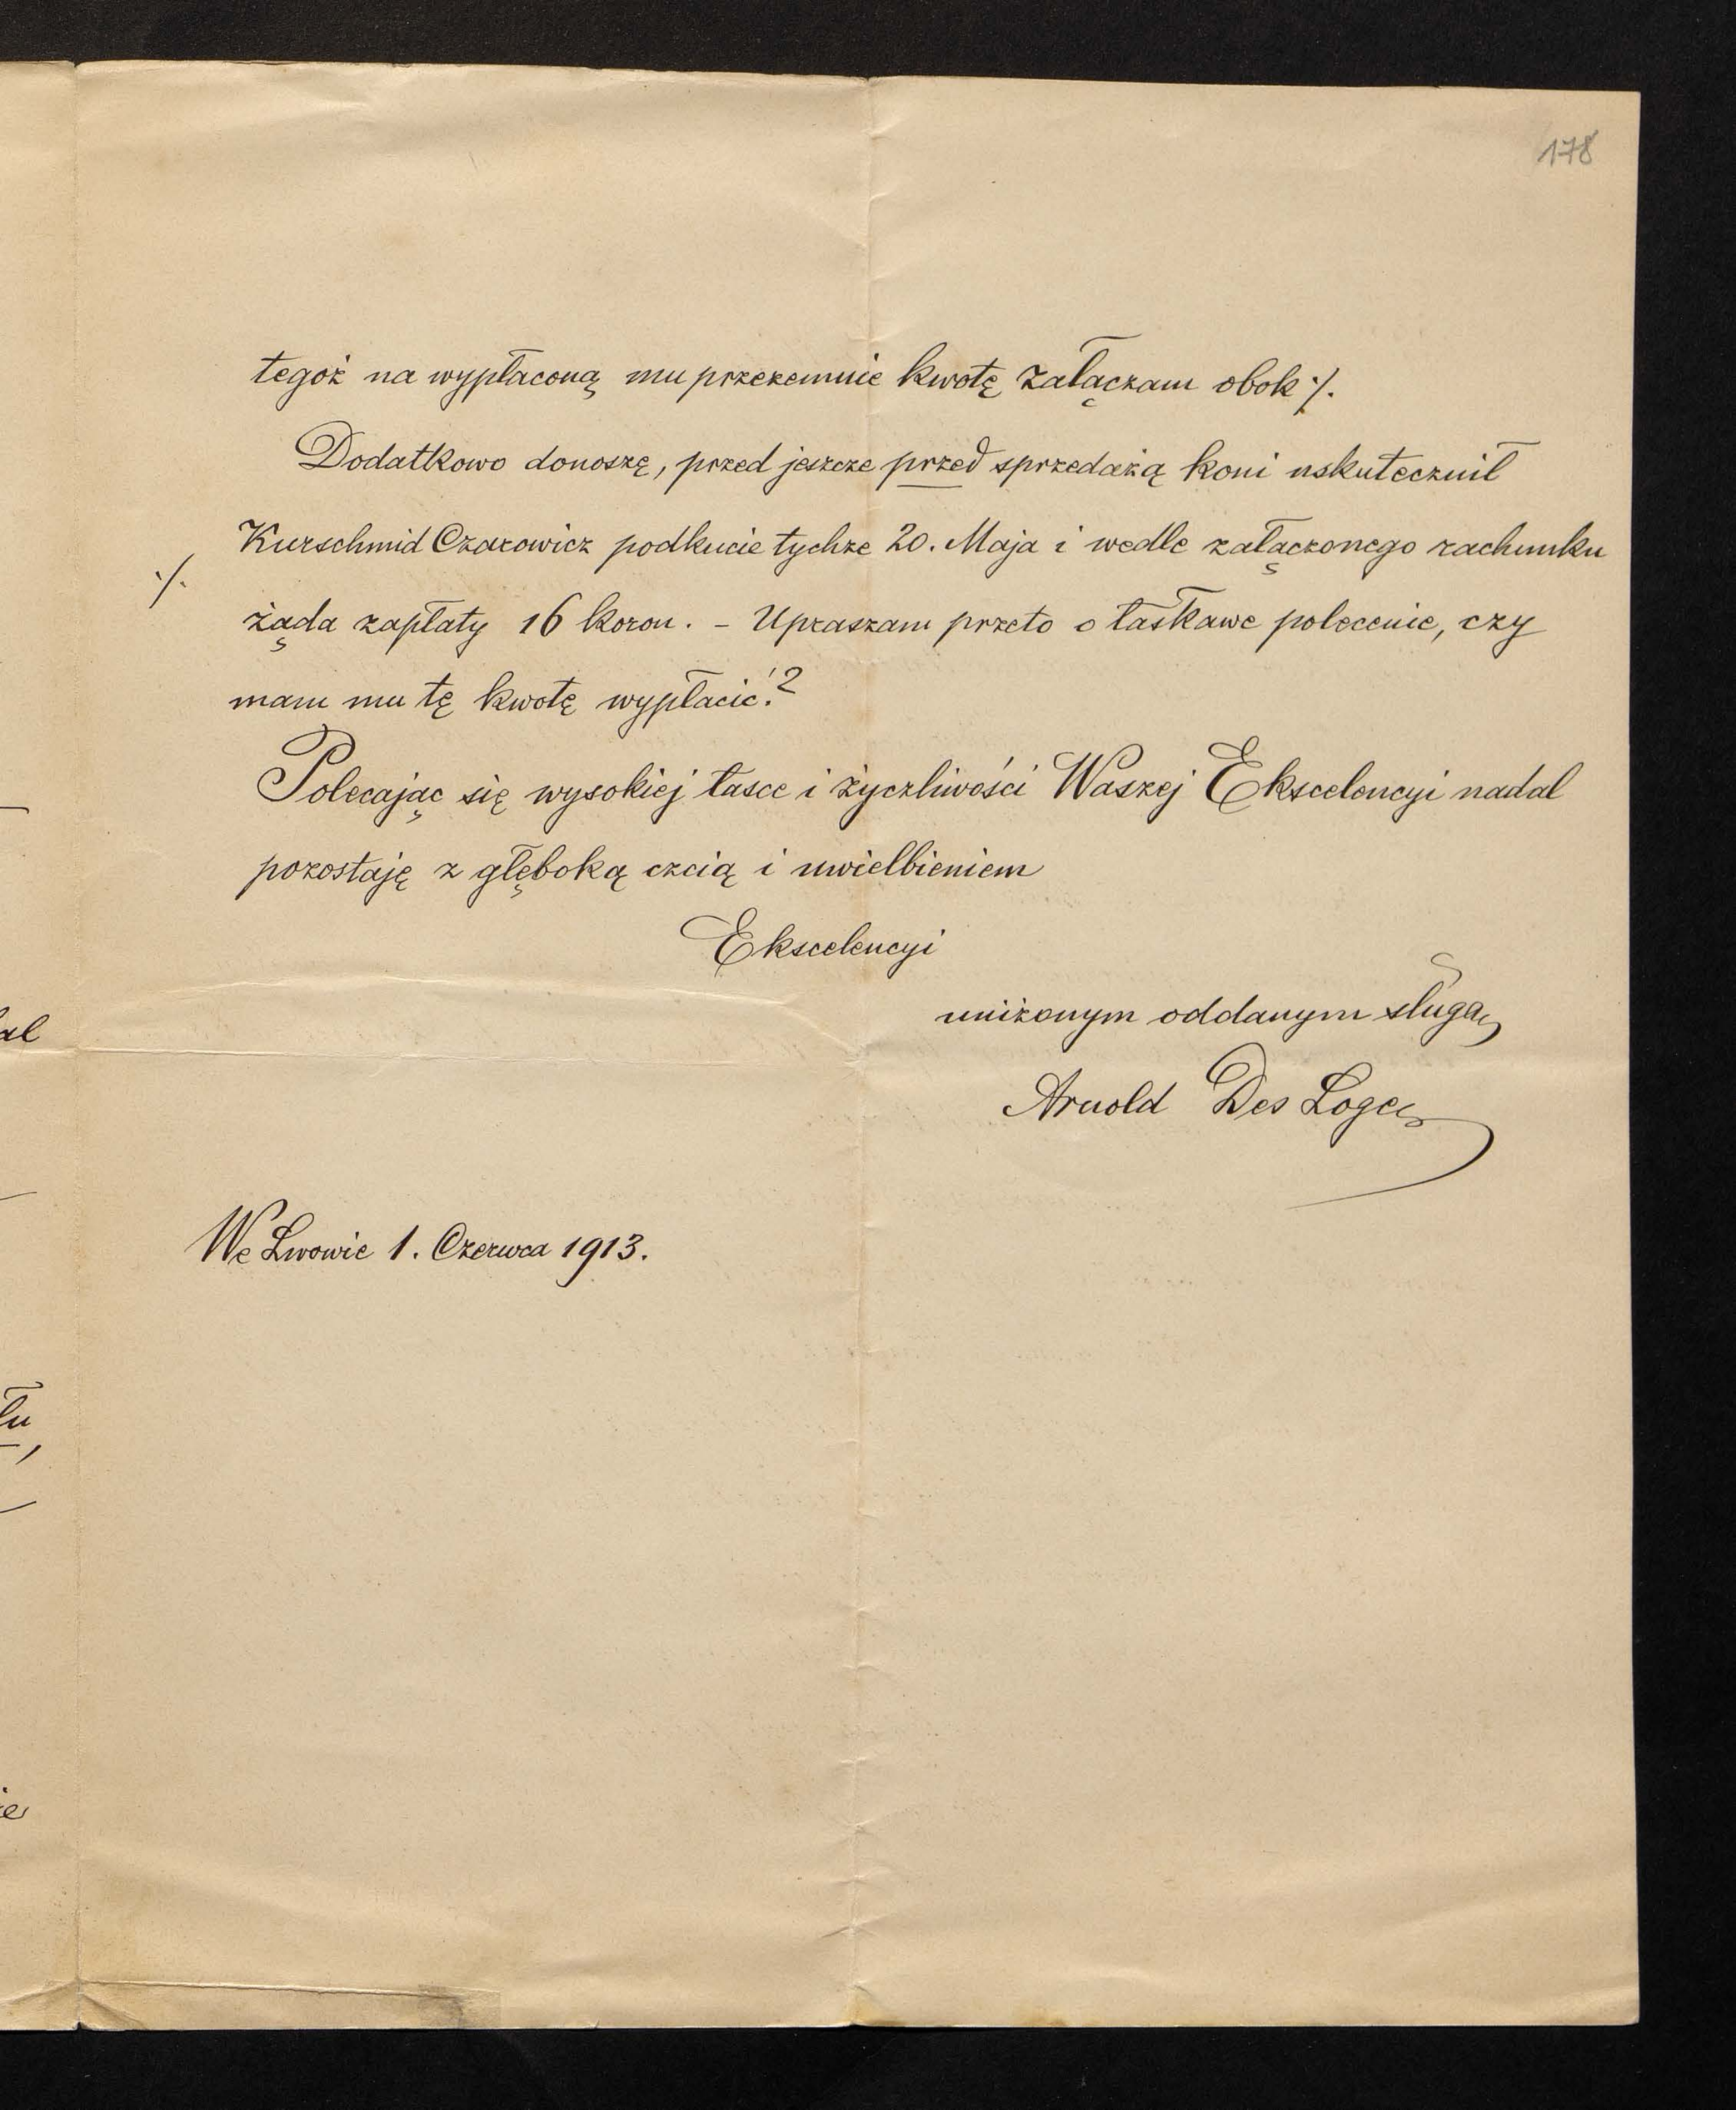 178
tegoż na wypłaconą mu przezemnie kwotę załączam obok ·/.
Dodatkowo donoszę, przed jeszcze przed sprzedażą koni uskutecznił
Kurschmid Czarowicz podkucie tychże 20. Maja i wedle załączonego rachunku
·/. żąda zapłaty 16 koron. – Upraszam przeto o łaskawe polecenie, czy
mam mu tę kwotę wypłacić!?
Polecając się wysokiej łasce i życzliwości Waszej Ekscelencyi nadal
pozostaję z głęboką czcią i uwielbieniem
Ekscelencyi
uniżonym oddanym sługą
Arnold Des Loges
We Lwowie 1. Czerwca 1913.